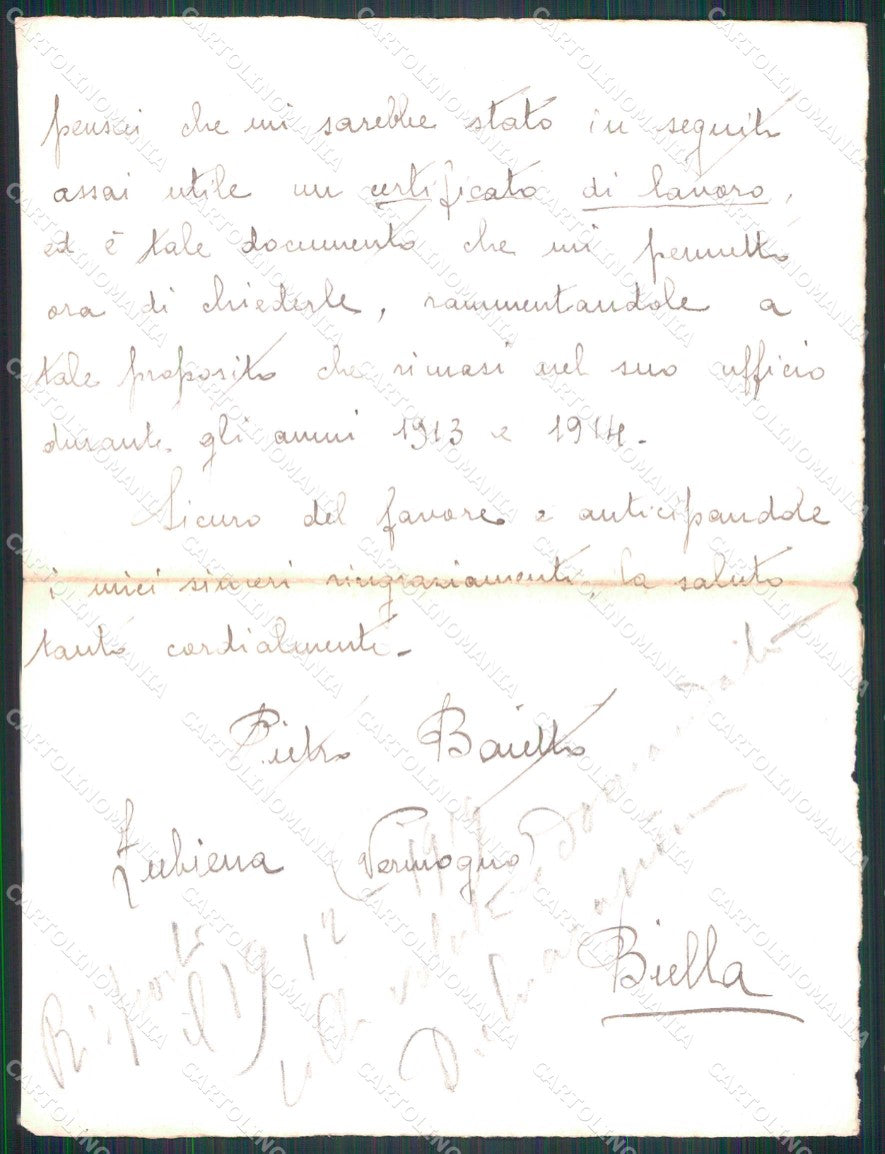 pensai che mi sarebbe stato in seguito
assai utile un certificato di lavoro,
ed è tale documento che mi permetto
ora di chiederle, rammentandole a
tale proposito che rimasi nel suo ufficio
durante gli anni 1913 e 1914.
Sicuro del favore e anticipandole
i miei sinceri ringraziamenti, la saluto
tanto cordialmente.
Pietro Baietto
Zubiena (Vermogno)
Biella
Risposto
il 19 12 1919
CARTOLINOMANIA